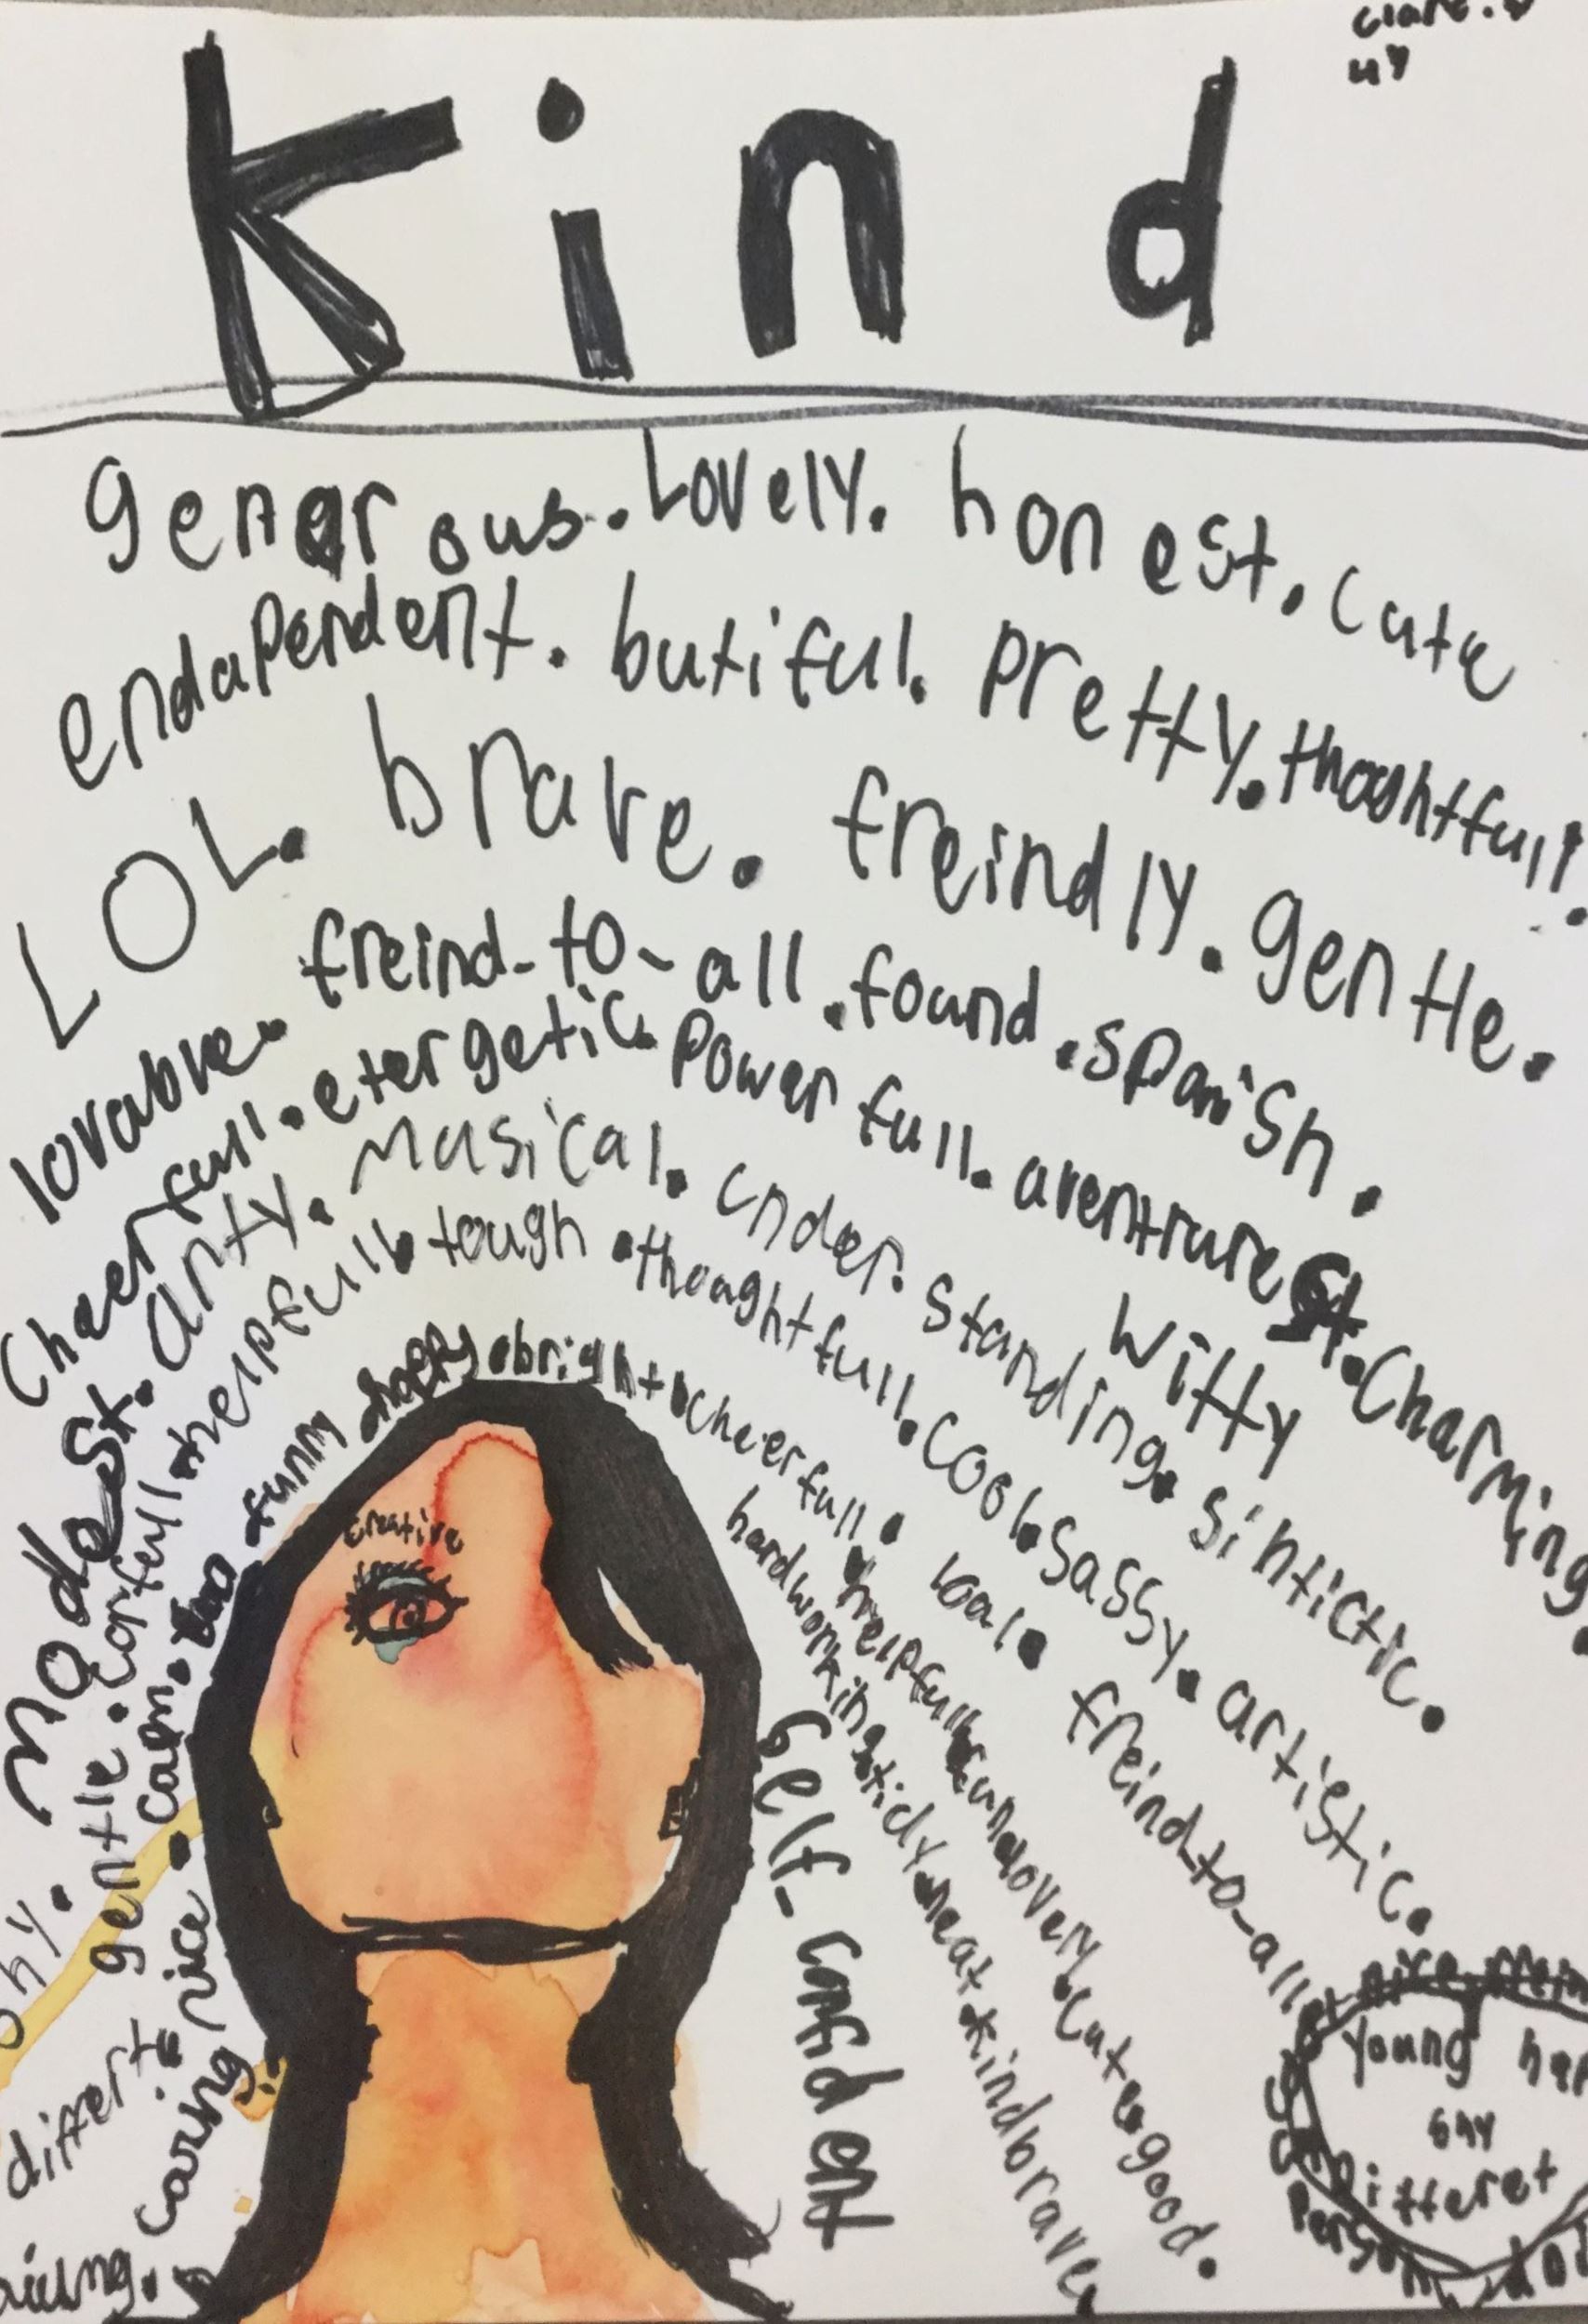 Kind
genarous. Lovely. honest. Cute
endapendent. butiful. pretty. thoashtfull.
LOL. brave. freindly. gentle.
lovable. freind-to-all. found. spanish.
Cheerfull. etergetic. Power full. aventrurest. Charming.
witty
modest. arty. Musical. under. standing. sintictic.
gentle. carfull. helpfull. tough. thoughtfull. cool. sassy. artistic.
differt. caring. nice. calm. funny happy. bright. cheerfull. loal. freind-to-all.
creative
helpfull. lovery. cute. good.
hardworking. sticly. neat. kind brave.
self-confident
young
shy
differet
Person